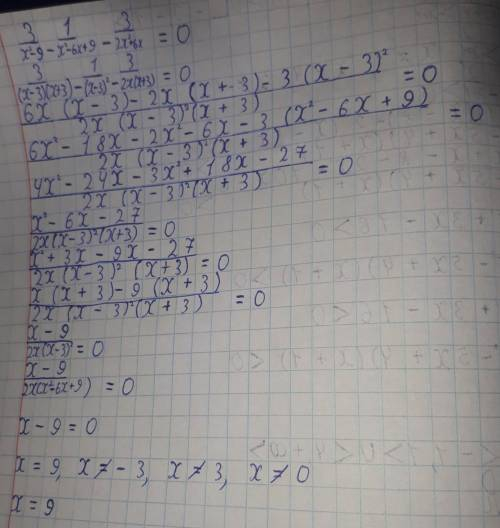 3/(x²-9) - 1/(x²-6x+9) - 3/(2x²+6x) = 0
3/((x-3)(x+3)) - 1/(x-3)² - 3/(2x(x+3)) = 0
(6x(x-3)-2x(x+3)-3(x-3)²)/(2x(x-3)²(x+3)) = 0
(6x²-18x-2x²-6x-3(x²-6x+9))/(2x(x-3)²(x+3)) = 0
(4x²-24x-3x²+18x-27)/(2x(x-3)²(x+3)) = 0
(x²-6x-27)/(2x(x-3)²(x+3)) = 0
(x²+3x-9x-27)/(2x(x-3)²(x+3)) = 0
(x(x+3)-9(x+3))/(2x(x-3)²(x+3)) = 0
(x-9)/(2x(x-3)²) = 0
(x-9)/(2x(x²-6x+9)) = 0
x-9=0
x=9, x≠-3, x≠3, x≠0
x=9